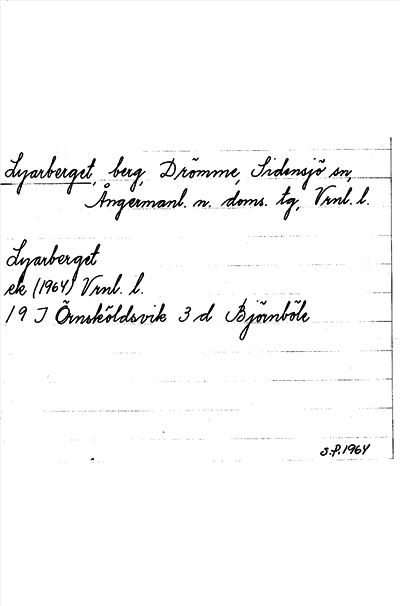 Lyarberget, berg, Drömme, Sidensjö sn,
Ångermanl. n. doms. tg, Vrnl. l.
Lyarberget
ek (1964) Vrnl. l.
19 J Örnsköldsvik 3 d Björnböle
S.P. 1964